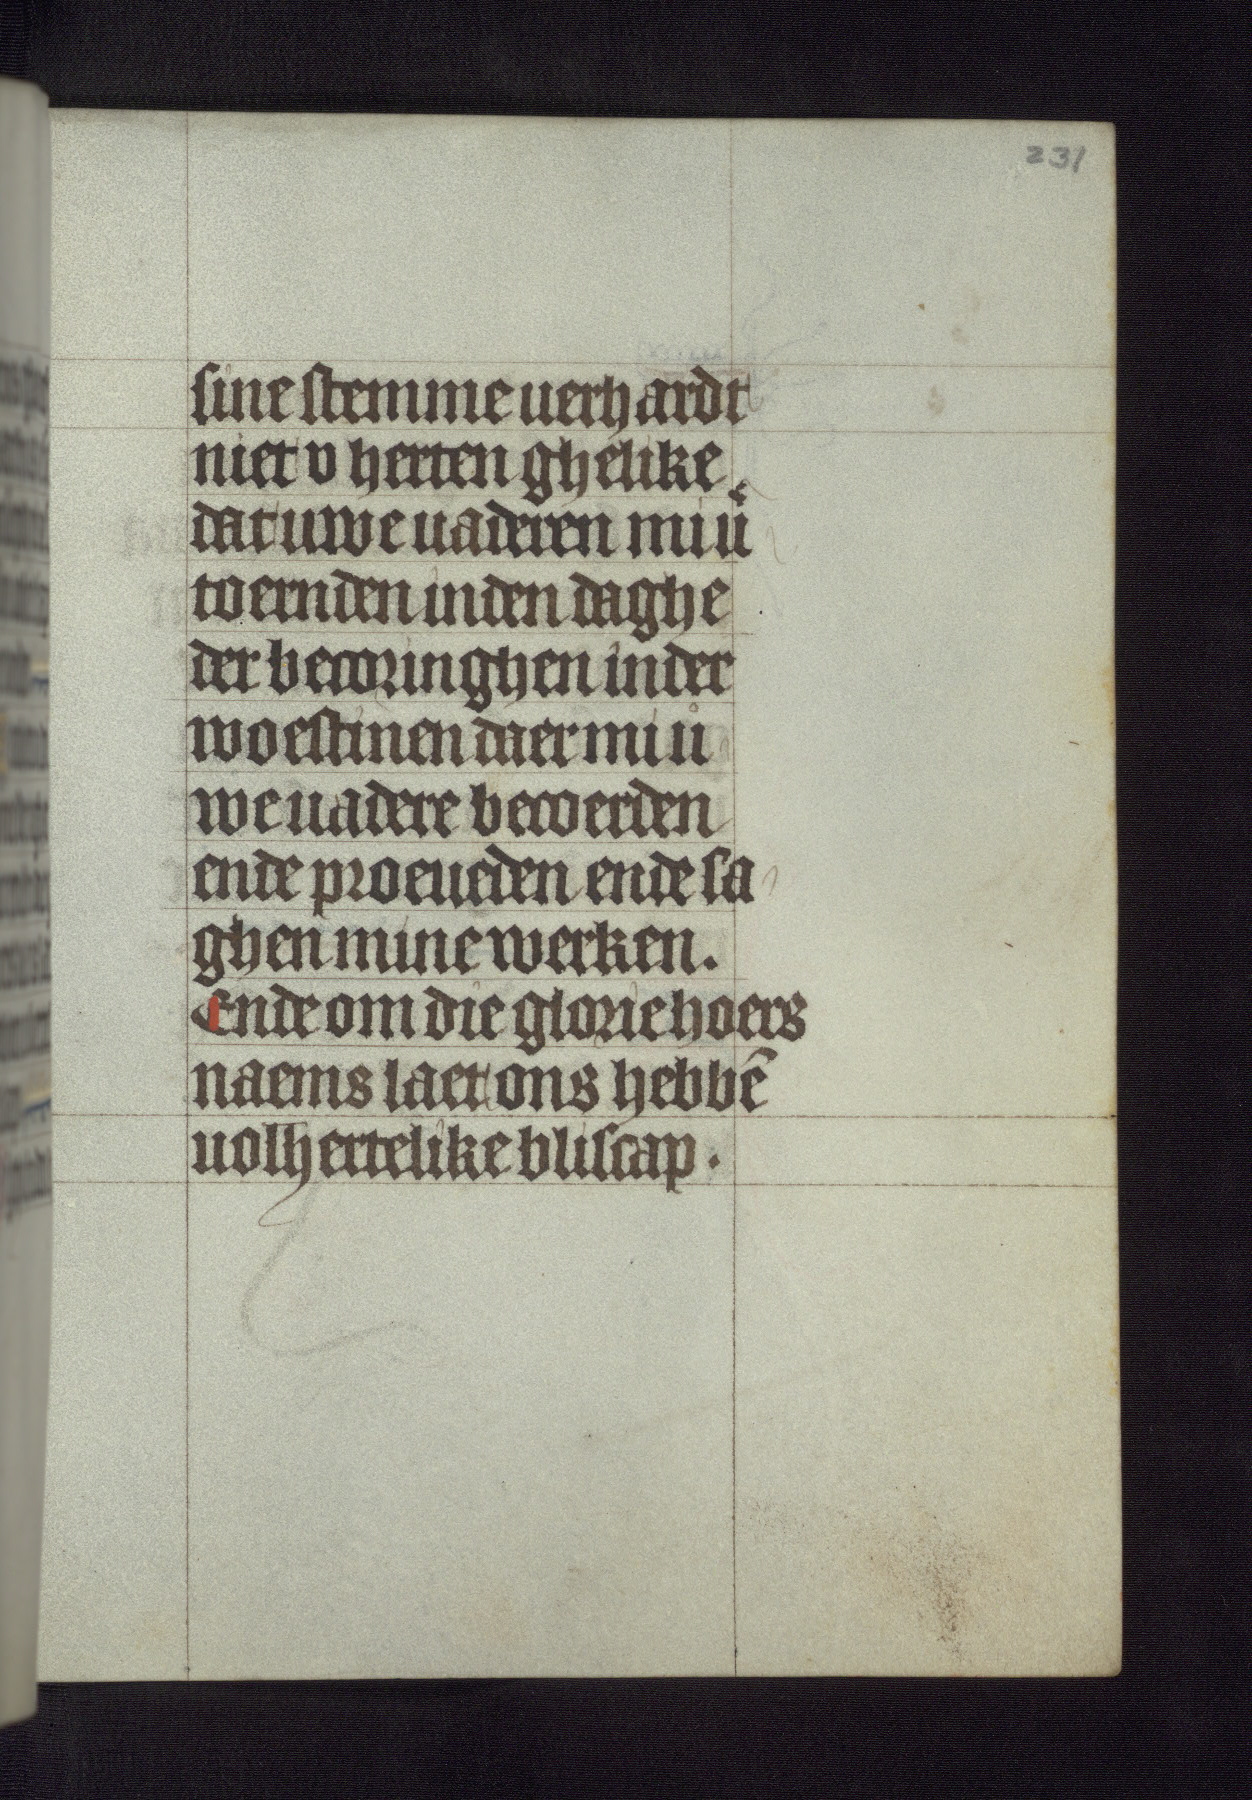 231
sine stemme uerhardt
niet v herten ghelike
dat uwe uaderen mi uͤ
toernden in den daghe
der becoringhen in der
woestinen daer mi u
we uadere becoerden
ende proeueden ende sa
ghen mine werken.
Ende om die glorie hoers
naems laet ons hebbē
uolhertelike bliscap.